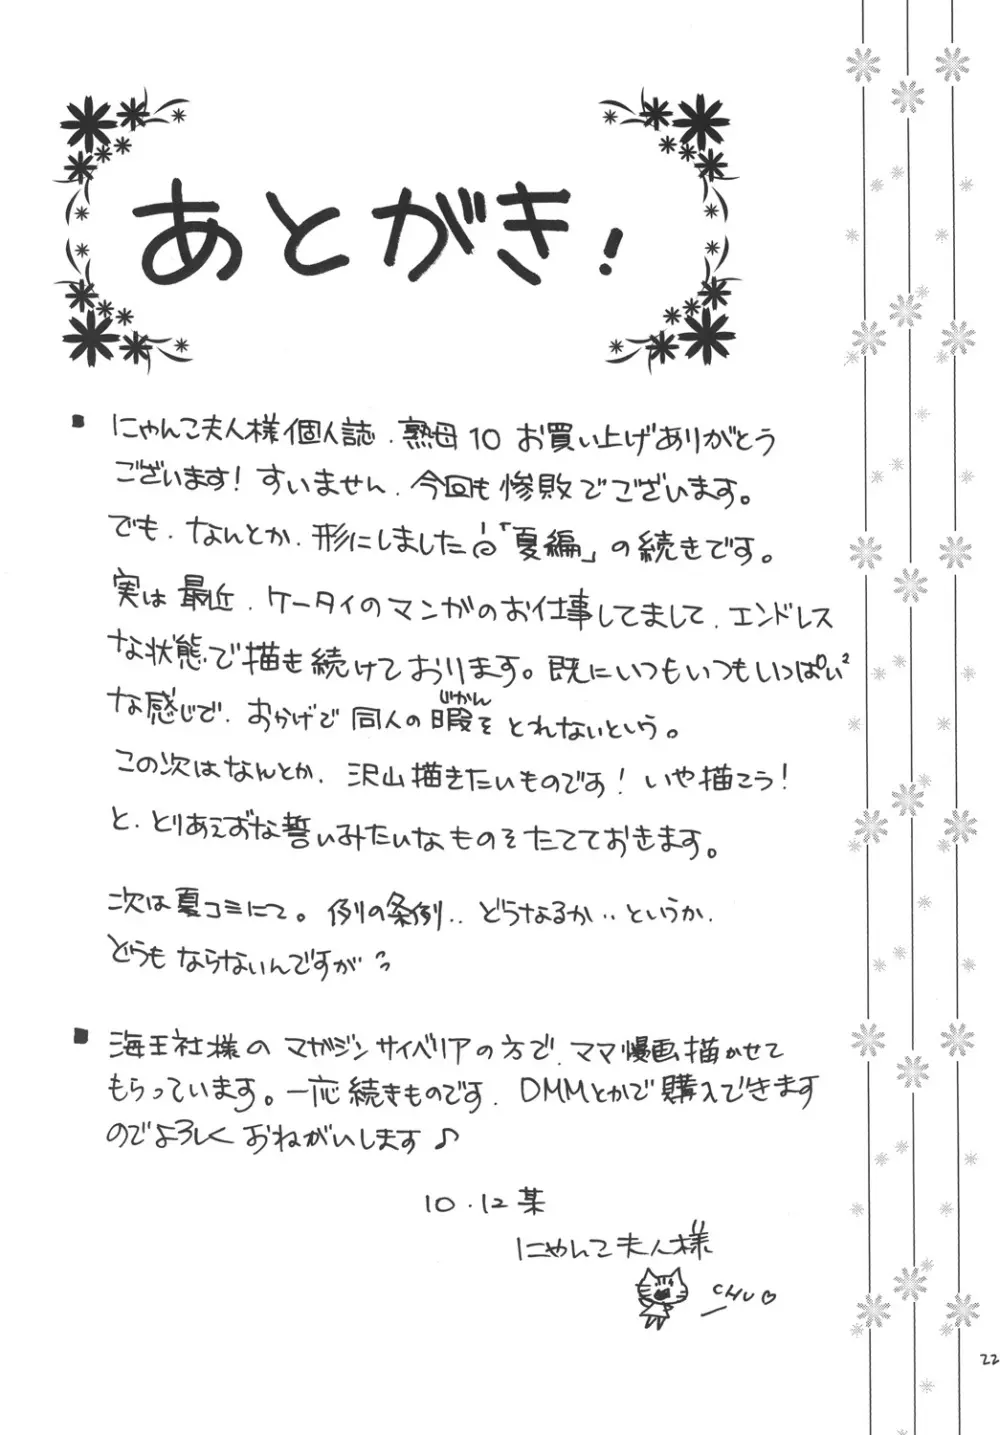 あとがき!
■ にゃんこ夫人様個人誌、熟母10 お買い上げありがとう
ございます! すいません、今回も惨敗でございます。
でも、なんとか、形にしました「夏編」の続きです。
実は最近、ケータイのマンガのお仕事してまして、エンドレス
な状態で描き続けております。既にいつもいつもいっぱい²
な感じで、おかげで同人の暇(じかん)をとれないという。
この次はなんとか、沢山描きたいものです! いや描こう!
と、とりあえずな誓いみたいなものをたてておきます。
次は夏コミにて。例の条例‥どうなるか‥というか、
どうもならないんですが
■ 海王社様のマガジンサイベリアの方で、ママ漫画描かせて
もらっています。一応続きものです、DMMとかで購入できます
のでよろしくおねがいします♪
10.12某
にゃんこ夫人様
CHU♡
22